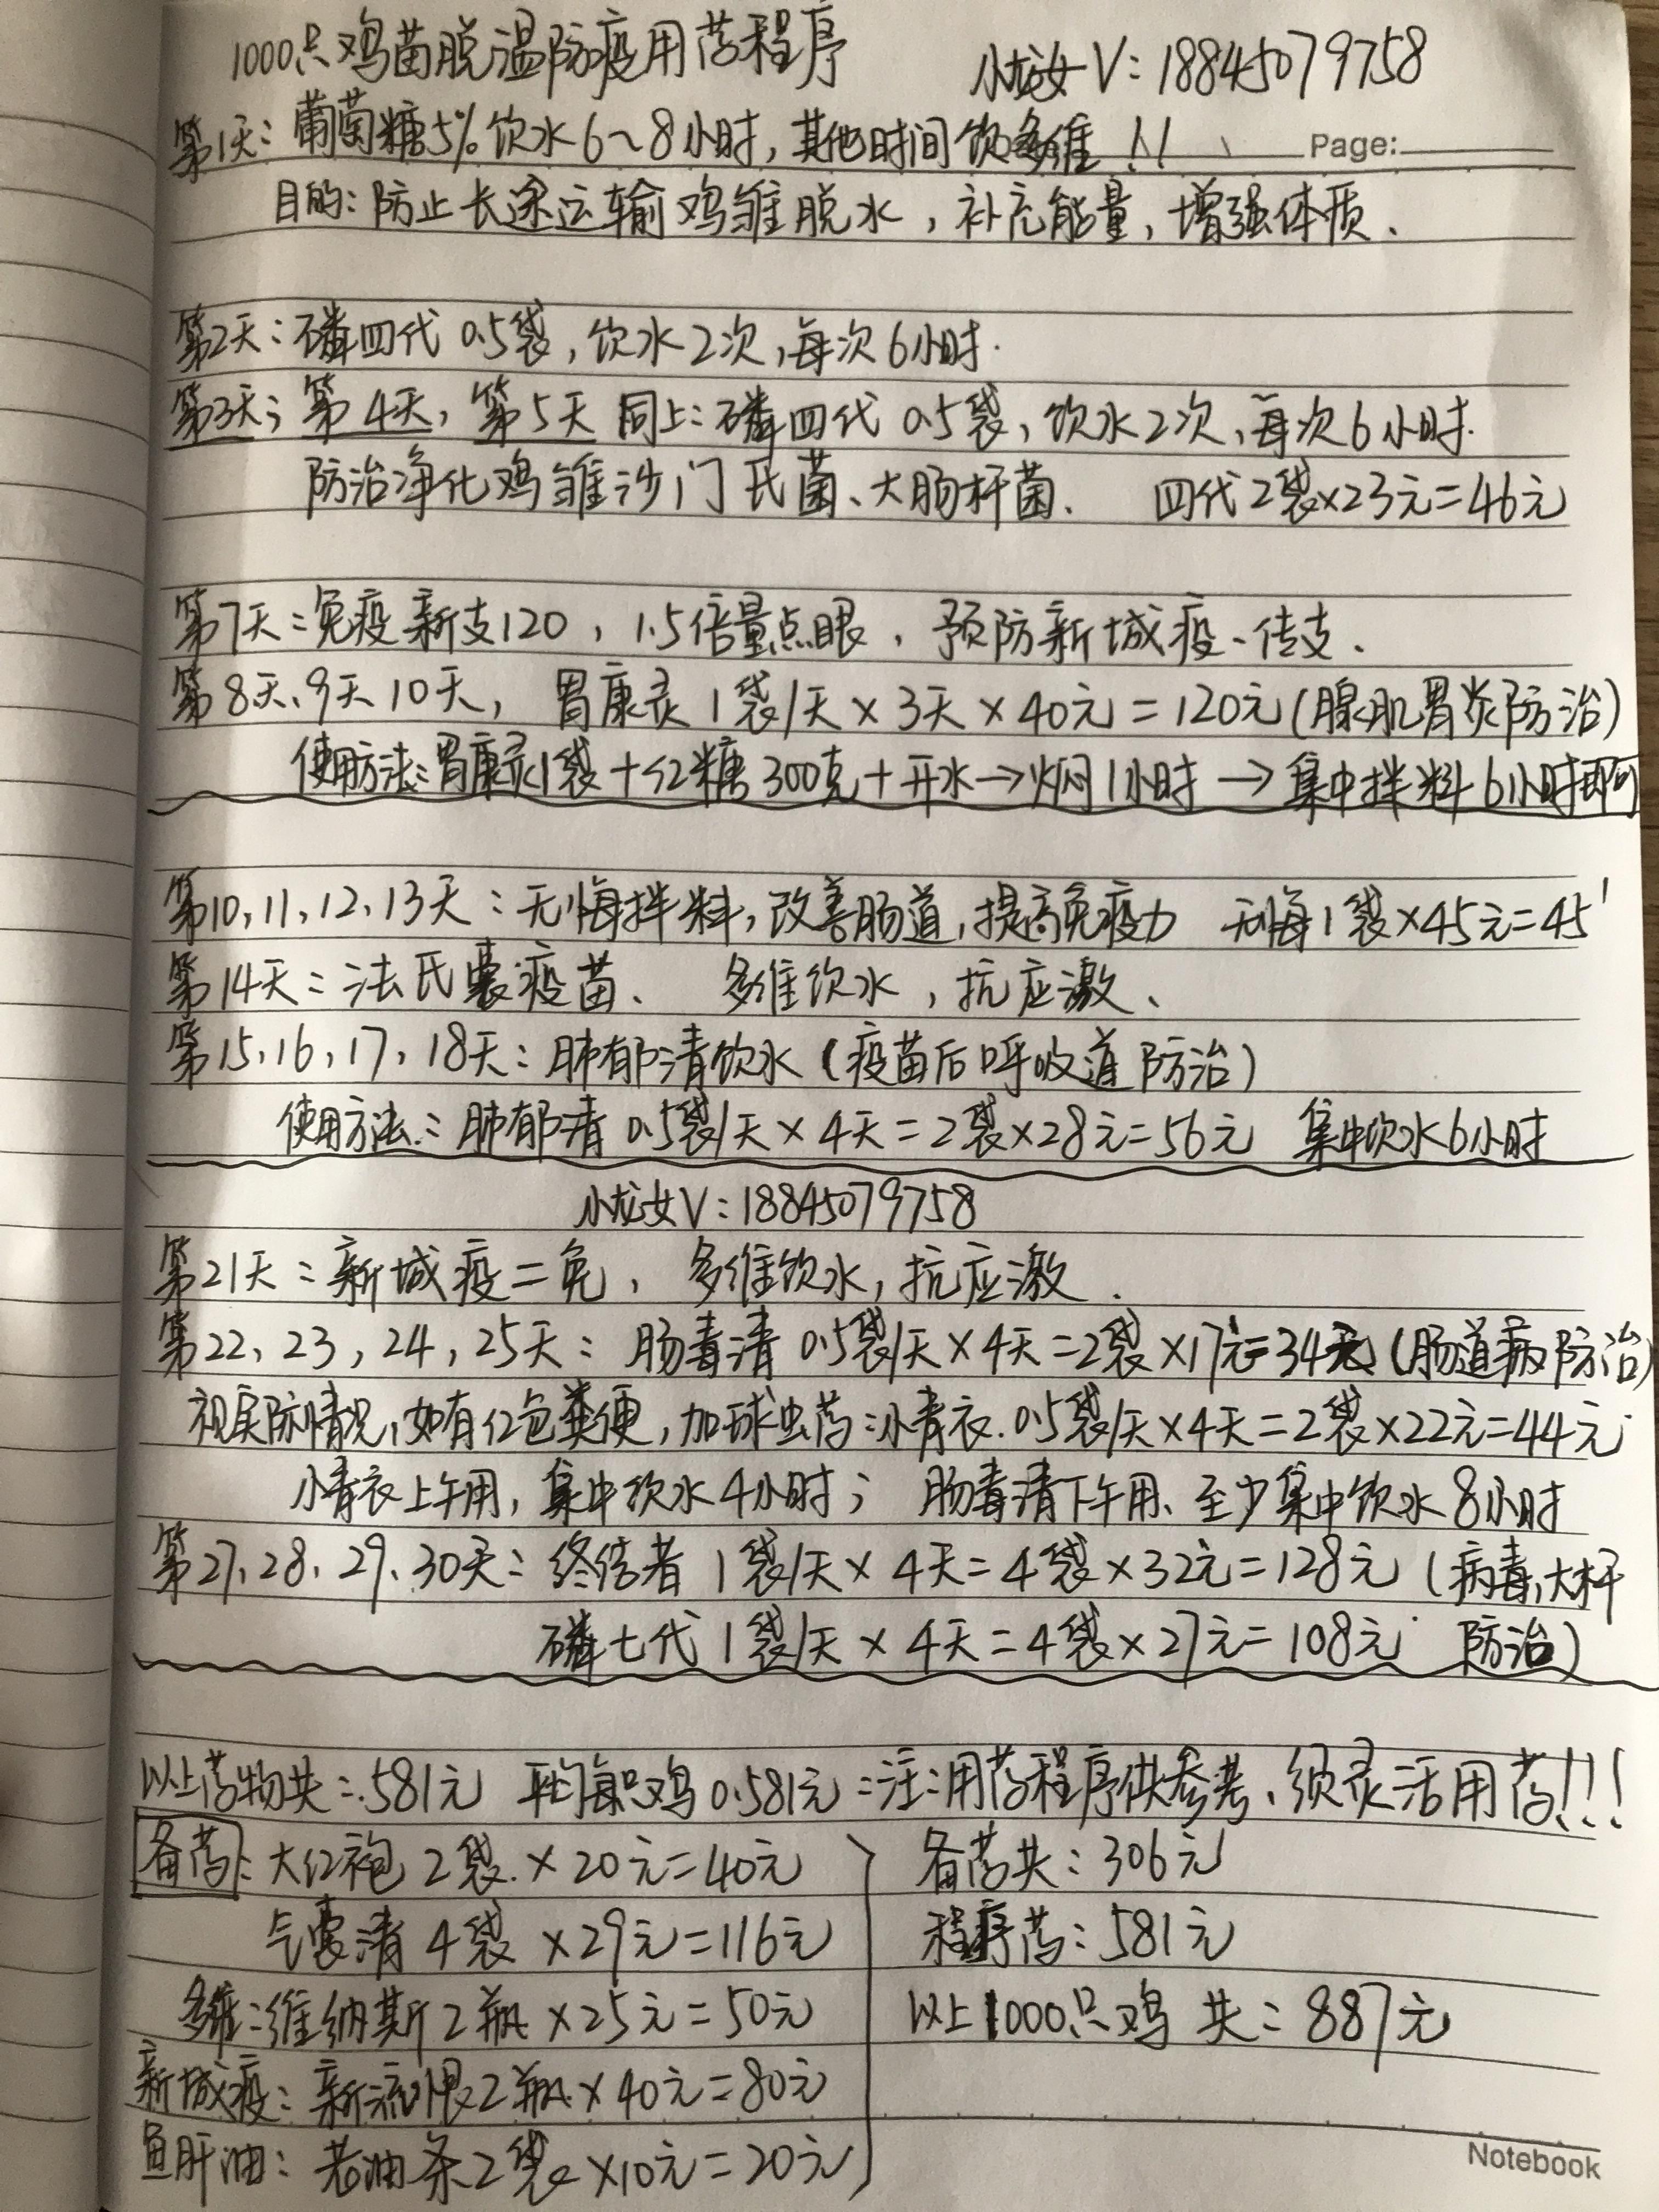 1000只鸡苗脱温防疫用药程序 小龙女V:18845079758
第1天:葡萄糖5%饮水6~8小时,其他时间饮多维!!
Page:
目的:防止长途运输鸡雏脱水,补充能量,增强体质、
第2天:磷四代 0.5袋,饮水2次,每次6小时.
第3天;第4天,第5天 同上:磷四代 0.5袋,饮水2次,每次6小时.
防治净化鸡雏沙门氏菌、大肠杆菌、 四代2袋×23元=46元
第7天:免疫新支120,1.5倍量点眼,预防新城疫、传支、
第8天、9天10天, 胃康灵1袋/天×3天×40元=120元(腺肌胃炎防治)
使用方法:胃康灵1袋+红糖300克+开水→焖1小时→集中拌料6小时即可
第10,11,12、13天:无悔拌料,改善肠道,提高免疫力 无悔1袋×45元=45
第14天:法氏囊疫苗、 多维饮水,抗应激、
第15,16,17,18天:肺郁清饮水(疫苗后呼吸道防治)
使用方法:肺郁清0.5袋/天×4天=2袋×28元=56元 集中饮水6小时
小龙女V:18845079758
第21天:新城疫二免, 多维饮水,抗应激.
第22,23,24,25天: 肠毒清0.5袋/天×4天=2袋×17元=34元(肠道病防治)
视实际情况,如有红色粪便,加球虫药:小青衣.0.5袋/天×4天=2袋×22元=44元
小青衣上午用,集中饮水4小时; 肠毒清下午用、至少集中饮水8小时
第27,28、29、30天:终结者1袋/天×4天=4袋×32元=128元(病毒,大杆
磷七代1袋/天×4天=4袋×27元=108元 防治)
以上药物共:581元 平均每只鸡0.581元 注:用药程序供参考、须灵活用药!!!
备药:大红袍2袋×20元=40元 备药共:306元
气囊清4袋×29元=116元 程序药:581元
多维:维纳斯2瓶×25元=50元 以上1000只鸡 共:887元
新城疫:新流狠2瓶×40元=80元
鱼肝油:老油条2袋×10元=20元
Notebook